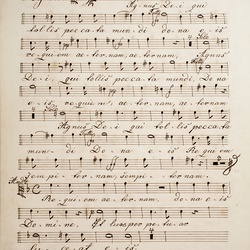 Agnus De - i qui
tol-lis pecca-ta mun-di dona e-is
requiem ae-ter-nam, ae-ternam, Agnus
De-i, qui tollis pecca-ta mundi, Dona
e-is requi-em ae-ter-nam, ae-ternam
Agnus De-i qui tol-lis peccata
mun-di Do-na e-is Requiem
sem-pi-ter-nam, sempi-ter-nam.
Re-qui-em ae-ter-nam dona e-is
Do-mi-ne, et lux perpe-tu-a
lu-ce-at e-is